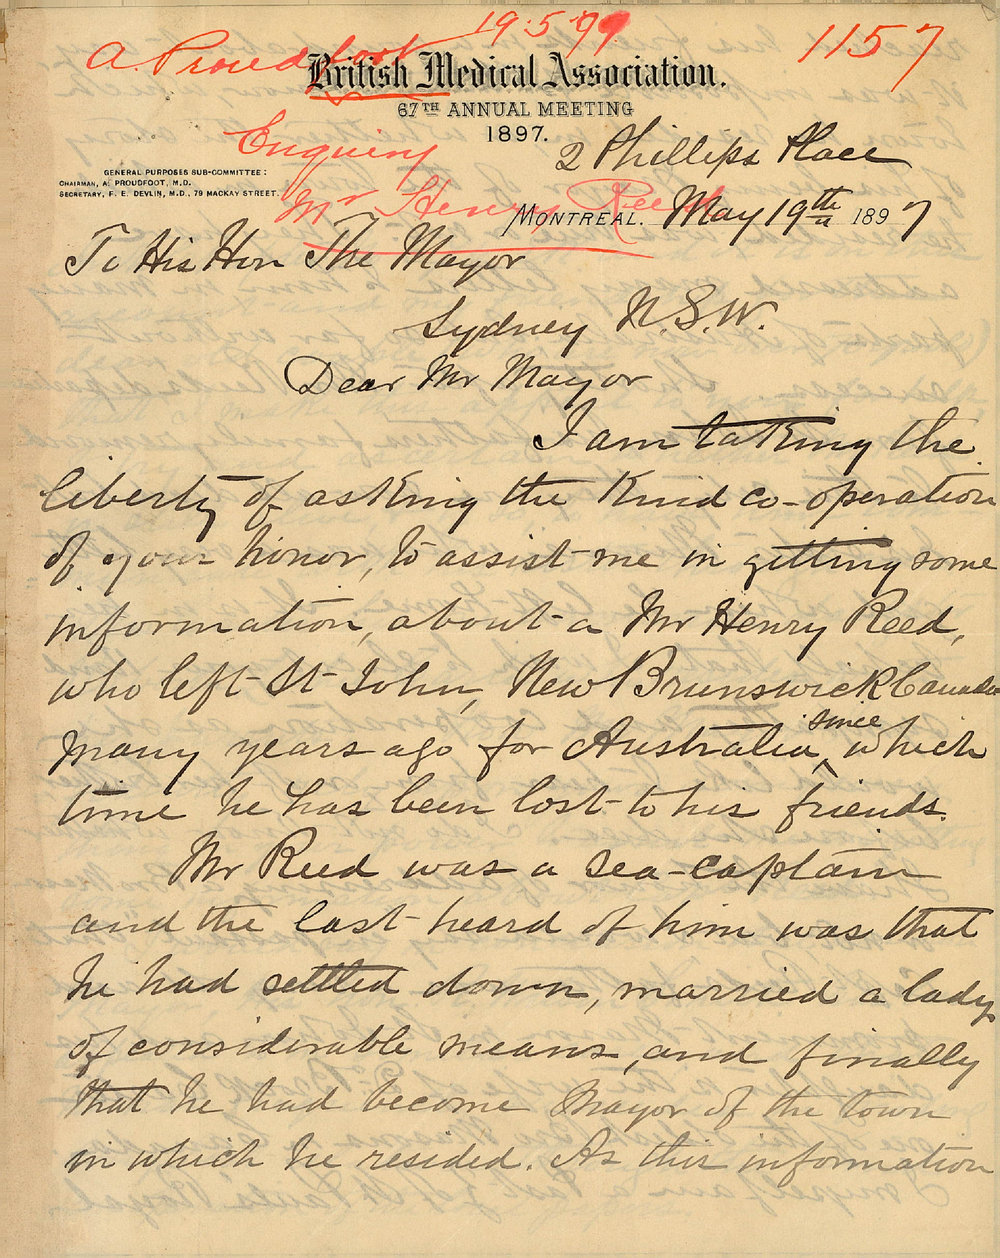 19.5.99
A. Proudfoot
1157
British Medical Association.
67TH ANNUAL MEETING
1897.
Enquiry
2 Phillips Place
GENERAL PURPOSES SUB-COMMITTEE:
CHAIRMAN, A. PROUDFOOT, M.D.
SECRETARY, F. E. DEVLIN, M.D., 79 MACKAY STREET.
Mr Henry Reed
MONTREAL. May 19th 1897
To His Hon The Mayor
Sydney N.S.W.
Dear Mr Mayor
I am taking the
liberty of asking the kind co-operation
of your honor, to assist me in getting some
information, about a Mr Henry Reed,
who left St John, New Brunswick Canada
many years ago for Australia, since which
time he has been lost to his friends.
Mr Reed was a sea-captain
and the last heard of him was that
he had settled down, married a lady
of considerable means, and finally
that he had become Mayor of the town
in which he resided. As this information